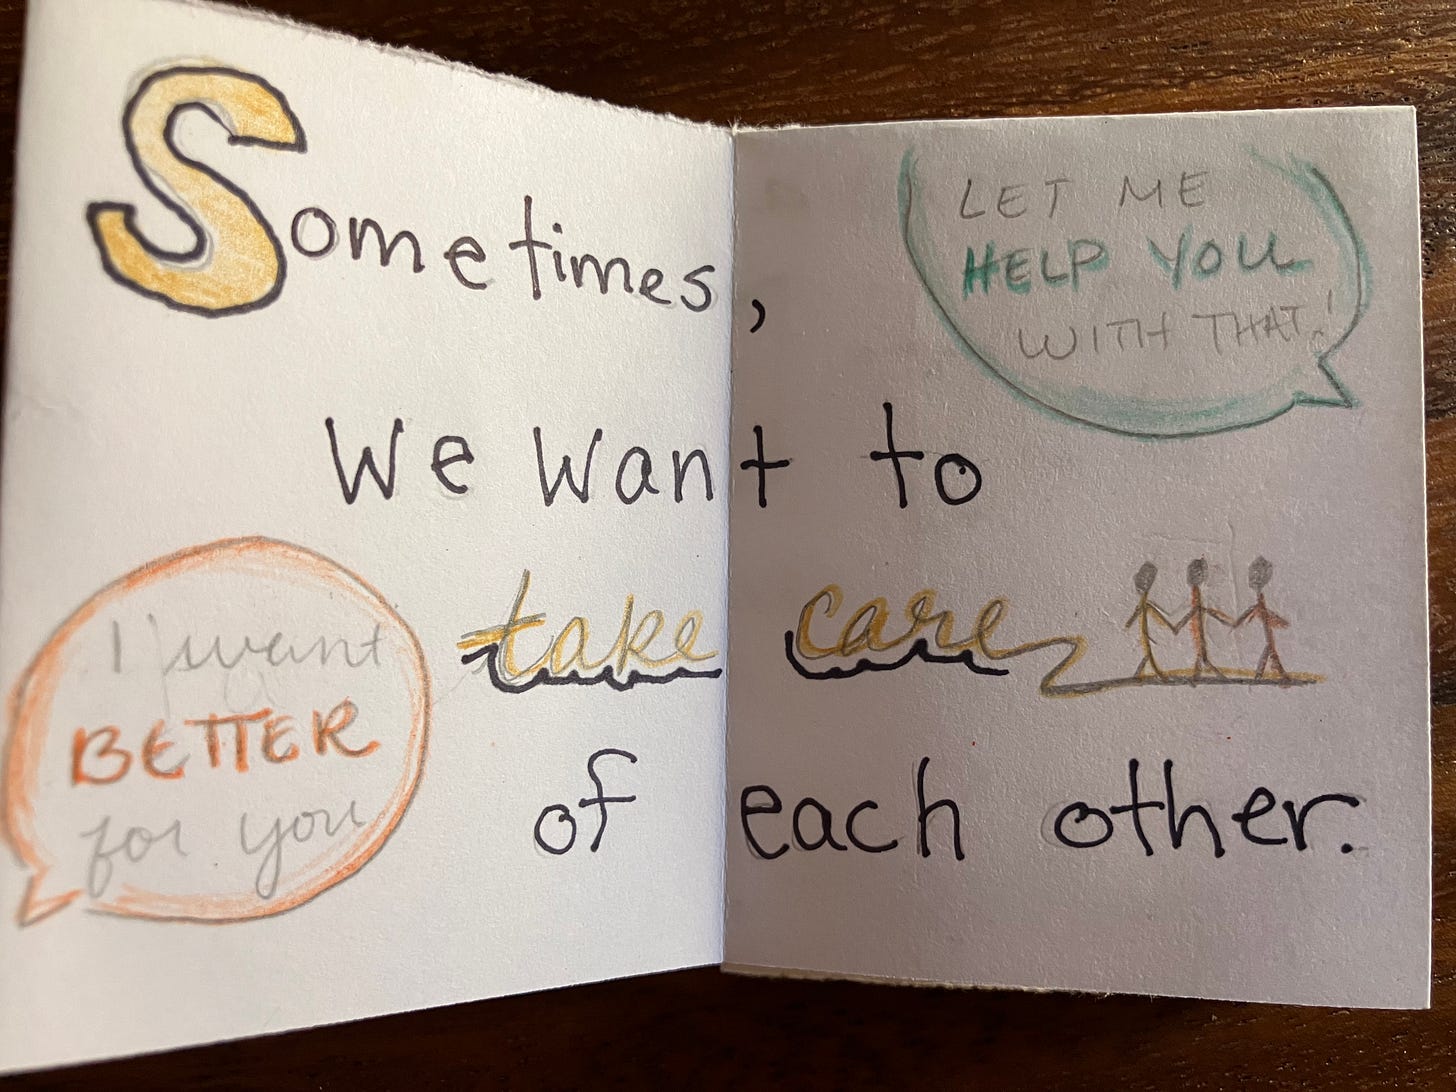 Sometimes,
LET ME
HELP YOU
WITH THAT!
We want to
take care
I want
BETTER
for you
of each other.